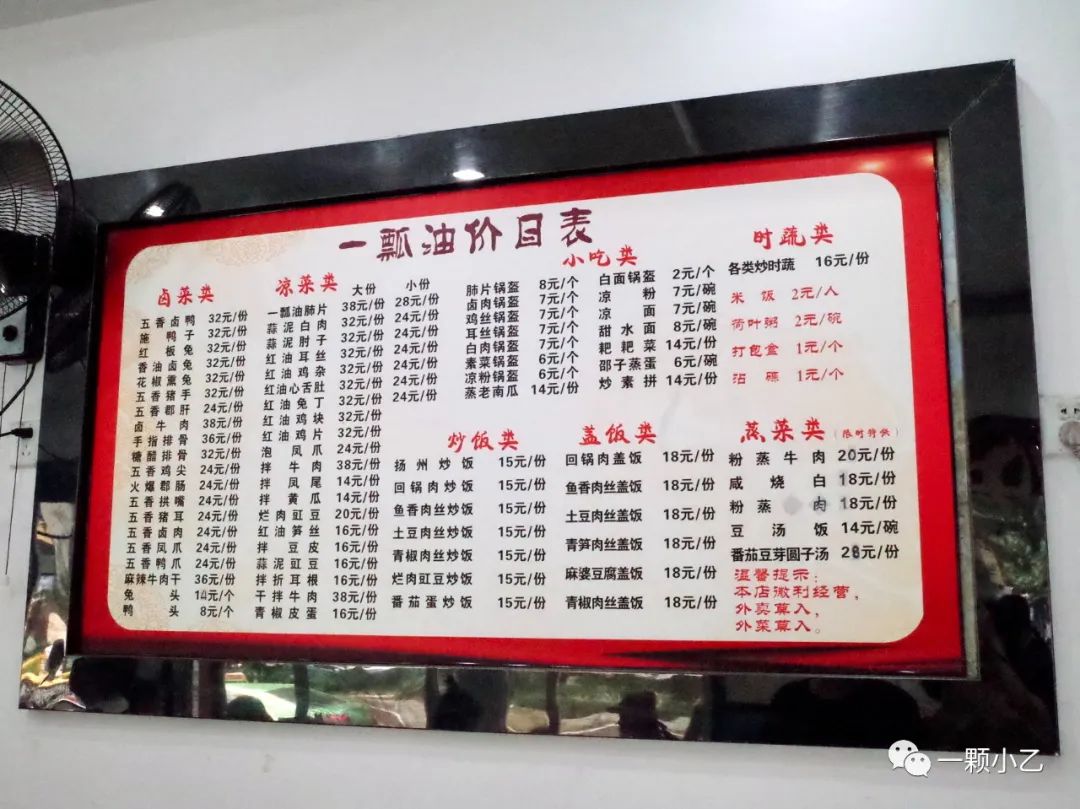 一瓢油价目表
卤菜类
五香卤鸭 32元/份
施鸭子 32元/份
红板兔 32元/份
香油卤兔 32元/份
花椒熏兔 32元/份
五香猪手 32元/份
五香郡肝 24元/份
卤牛肉 38元/份
手指排骨 36元/份
糖醋排骨 32元/份
五香鸡尖 24元/份
火爆郡肠 24元/份
五香拱嘴 24元/份
五香猪耳 24元/份
五香卤肉 24元/份
五香凤爪 24元/份
五香鸭爪 24元/份
麻辣牛肉干 36元/份
兔头 10元/个
鸭头 8元/个
凉菜类 大份 小份
一瓢油肺片 38元/份 28元/份
蒜泥白肉 32元/份 24元/份
蒜泥肘子 32元/份 24元/份
红油耳丝 32元/份 24元/份
红油鸡杂 32元/份 24元/份
红油心舌肚 32元/份 24元/份
红油兔丁 32元/份 24元/份
红油鸡块 32元/份
红油鸡片 32元/份
泡凤爪 24元/份
拌牛肉 38元/份
拌凤尾 14元/份
拌黄瓜 14元/份
烂肉豇豆 20元/份
红油笋丝 16元/份
拌豆皮 16元/份
蒜泥豇豆 16元/份
拌折耳根 16元/份
干拌牛肉 38元/份
青椒皮蛋 16元/份
小吃类
肺片锅盔 8元/个
卤肉锅盔 7元/个
鸡丝锅盔 7元/个
耳丝锅盔 7元/个
白肉锅盔 7元/个
素菜锅盔 6元/个
凉粉锅盔 6元/个
蒸老南瓜 14元/份
白面锅盔 2元/个
凉粉 7元/碗
凉面 7元/碗
甜水面 8元/碗
耙耙菜 14元/份
邵子蒸蛋 6元/碗
炒素拼 14元/份
时蔬类
各类炒时蔬 16元/份
米饭 2元/人
荷叶粥 2元/碗
打包盒 1元/个
沾碟 1元/个
炒饭类
扬州炒饭 15元/份
回锅肉炒饭 15元/份
鱼香肉丝炒饭 15元/份
土豆肉丝炒饭 15元/份
青椒肉丝炒饭 15元/份
烂肉豇豆炒饭 15元/份
番茄蛋炒饭 15元/份
盖饭类
回锅肉盖饭 18元/份
鱼香肉丝盖饭 18元/份
土豆肉丝盖饭 18元/份
青笋肉丝盖饭 18元/份
麻婆豆腐盖饭 18元/份
青椒肉丝盖饭 18元/份
蒸菜类(限时特供)
粉蒸牛肉 20元/份
咸烧白 18元/份
粉蒸肉 18元/份
豆汤饭 14元/碗
番茄豆芽圆子汤 28元/份
温馨提示：
本店微利经营，
外卖莫入，
外菜莫入。
一颗小乙